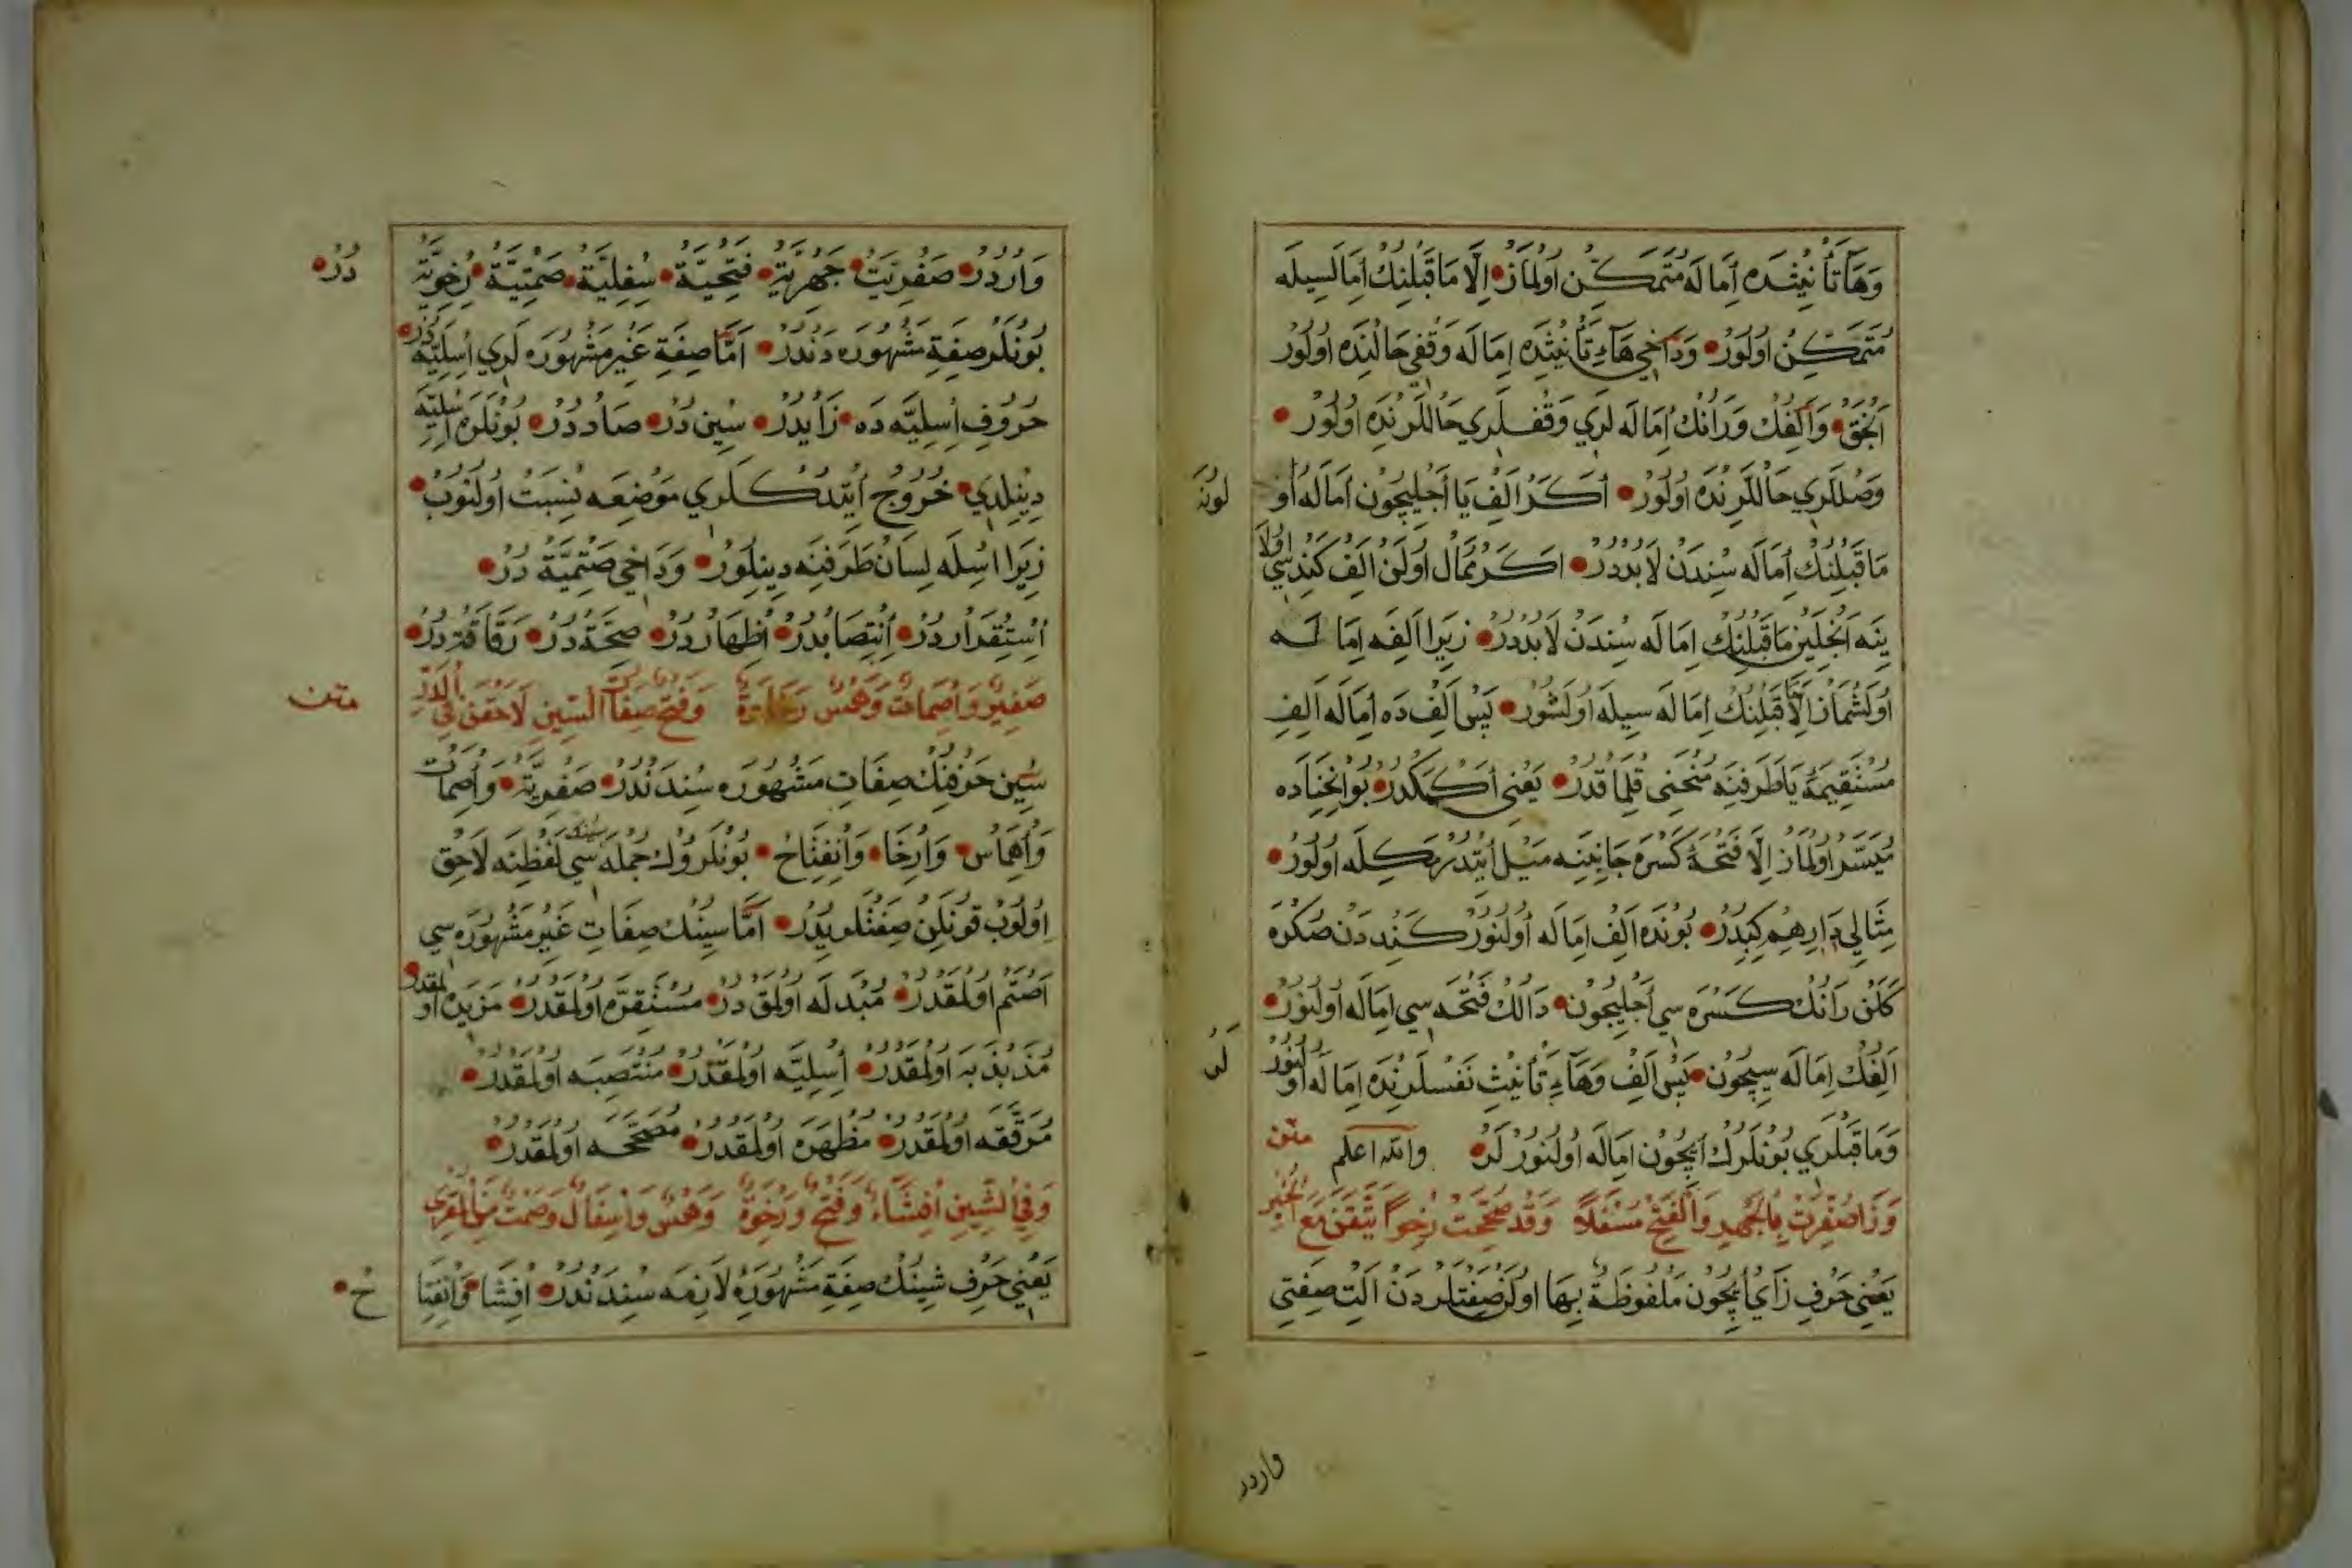 وَهَآ تَأْنِيثْدَه اِمَالَه مُتَمَكِّن اُولْمَازْ • اِلَّا مَاقَبْلِنِكْ اِمَالَسِيلَه
مُتَمَكِّنْ اُولُورْ • وَدَاخِي هَآءِ تَأْنِيثْدَه اِمَالَه وَقْفِي حَالِنْدَه اُولُورْ
اَنْجَقْ • وَاَلِفْكْ وَرَانُكْ اِمَالَه لَرِي وَقْفْلَرِي حَالْلَرِنْدَه اُولُورْ •
وَصْلْلَرِي حَالْلَرِنْدَه اُولُورْ • اَكَرْ اَلِفْ يَا اَجْلِيچُون اِمَالَه اُو
لُونَه
مَاقَبْلِنِكْ اِمَالَه سِنْدَنْ لَابُدْدُرْ • اَكَرْ مُمَالْ اُولَنْ اَلِفْ كَنْدِسِي اُولَا
يِنَه اَنْجِلَيِنْ مَاقَبْلِنِكْ اِمَالَه سِنْدَنْ لَابُدْدُرْ • زِيرَا اَلِفَه اِمَالَه
اُولَشْمَازْ اِلَّا مَاقَبْلِنِكْ اِمَالَه سِيلَه اُولَشُورْ • پَسْ اَلِفْ دَه اِمَالَه اَلِفِ
مُسْتَقِيمَةِ يَا طَرَفِنَه مُنْحَنِي قِلْمَاقْدُرْ • يَعْنِي اَكْمَكْدُرْ • بُو اِنْحِنَادَه
مُيَسَّرْ اُولْمَازْ اِلَّا فَتْحَةْ كَسْرَه جَانِبِنَه مَيْل اِيتْدُرْمَكِلَه اُولُورْ •
مِثَالِي دَارِهِمْ كِبِدُرْ • بُونْدَه اَلِفْ اِمَالَه اُولُنُورْ كَنْدِدَنْ صُكْرَه
كَلَنْ رَانُكْ كَسْرَه سِي اَجْلِيچُونْ • دَالُكْ فَتْحَه سِي اِمَالَه اُولُنُورْ •
اَلِفْكْ اِمَالَه سِيچُونْ • پَسْ اَلِفْ وَهَآءِ تَأْنِيثِ نَفْسْلَرِنْدَه اِمَالَه اُولُنُورْ
لَر
وَمَاقَبْلْلَرِي بُونْلَرُكْ اِيچُونْ اِمَالَه اُولُنُورْلَرْ • والله اعلم متن
وَزَا صُفِّرَتْ بِالْجَهْرِ وَالْفَتْحِ مُسْفَلًا وَقَدْ صُحِّحَتْ رِخْوًا تَيَقَّنْ مَعَ الْخُبْرِ
يَعْنِي حَرْفِ زَاي اِيچُون مَلْفُوظَةْ بِهَا اُولَنْ صِفَتْلَرْدَنْ اَلْتْ صِفَتِي
واردر
وَارْدُرْ • صَفْرِيَّتْ • جَهْرِيَّةْ • فَتْحِيَّةْ • سُفْلِيَّةْ • صَمْتِيَّةْ • رِخْوِيَّةْ
دُرْ •
بُونْلَرْ صِفَةِ مَشْهُورَه دَنْدُرْ • اَمَّا صِفَةِ غَيْرِ مَشْهُورَه لَرِي اَسَلِيَّه دُرْ •
حُرُوفِ اَسَلِيَّه دَه • زَايْدُرْ • سِينْ دُرْ • صَادْ دُرْ • بُونْلَرَه اَسَلِيَّه
دِينِلْدِي • خُرُوجْ اِيتْدُكْلَرِي مَوْضِعَه نِسْبَتْ اُولُنُوبْ •
زِيرَا اَسَلَه لِسَانْ طَرَفِنَه دِينِلُورْ • وَدَاخِي صَتْمِيَّةْ دُرْ •
اِسْتِقْرَارْدُرْ • اِنْتِصَابْدُرْ • اِظْهَارْدُرْ • صِحَّةْ دُرْ • رَقَاقَتْدُرْ •
صَفِيرٌ وَاِصْمَاتٌ وَهَمْسٌ رَخَاوَةٌ وَفَتْحٌ صِفَاتُ السِّينِ لَاحِقْنَ فِي الدُّرِّ
متن
سِينْ حَرْفِنِكْ صِفَاتِ مَشْهُورَه سِنْدَنْدُرْ • صَفْرِيَّةْ • وَاِصْمَاتْ
وَاِهْمَاسْ • وَاِرْخَا • وَاِنْفِتَاحْ • بُونْلَرُكْ جُمْلَه سِي سِينِكْ لَفْظِنَه لَاحِقْ
اُولُوبْ قُونْلَنْ صِفَتْلَرِيدُرْ • اَمَّا سِينِكْ صِفَاتِ غَيْرِ مَشْهُورَه سِي
اَصْتَمْ اُولْمَقْدُرْ • مُبْدَلَه اُولْمَقْ دُرْ • مُسْتَقِرَّه اُولْمَقْدُرْ • مَزِيدَه اُولْمَقْدُرْ •
مُذَبْذَبَه اُولْمَقْدُرْ • اَسَلِيَّه اُولْمَقْدُرْ • مُنْتَصِبَه اُولْمَقْدُرْ •
مُرَقَّقَه اُولْمَقْدُرْ • مُظْهَرَه اُولْمَقْدُرْ • مُصَحَّحَه اُولْمَقْدُرْ •
وَفِي الشِّينِ اِفْشَاءٌ وَفَتْحٌ وَرِخْوَةٌ وَهَمْسٌ وَاِسْفَالٌ وَصَمْتٌ مِنَ الْمُقْرِي
يَعْنِي حَرْفِ شِينِكْ صِفَةِ مَشْهُورَۀِ لَازِمَه سِنْدَنْدُرْ • اِفْشَا • وَاِنْفِتَا
حْ •